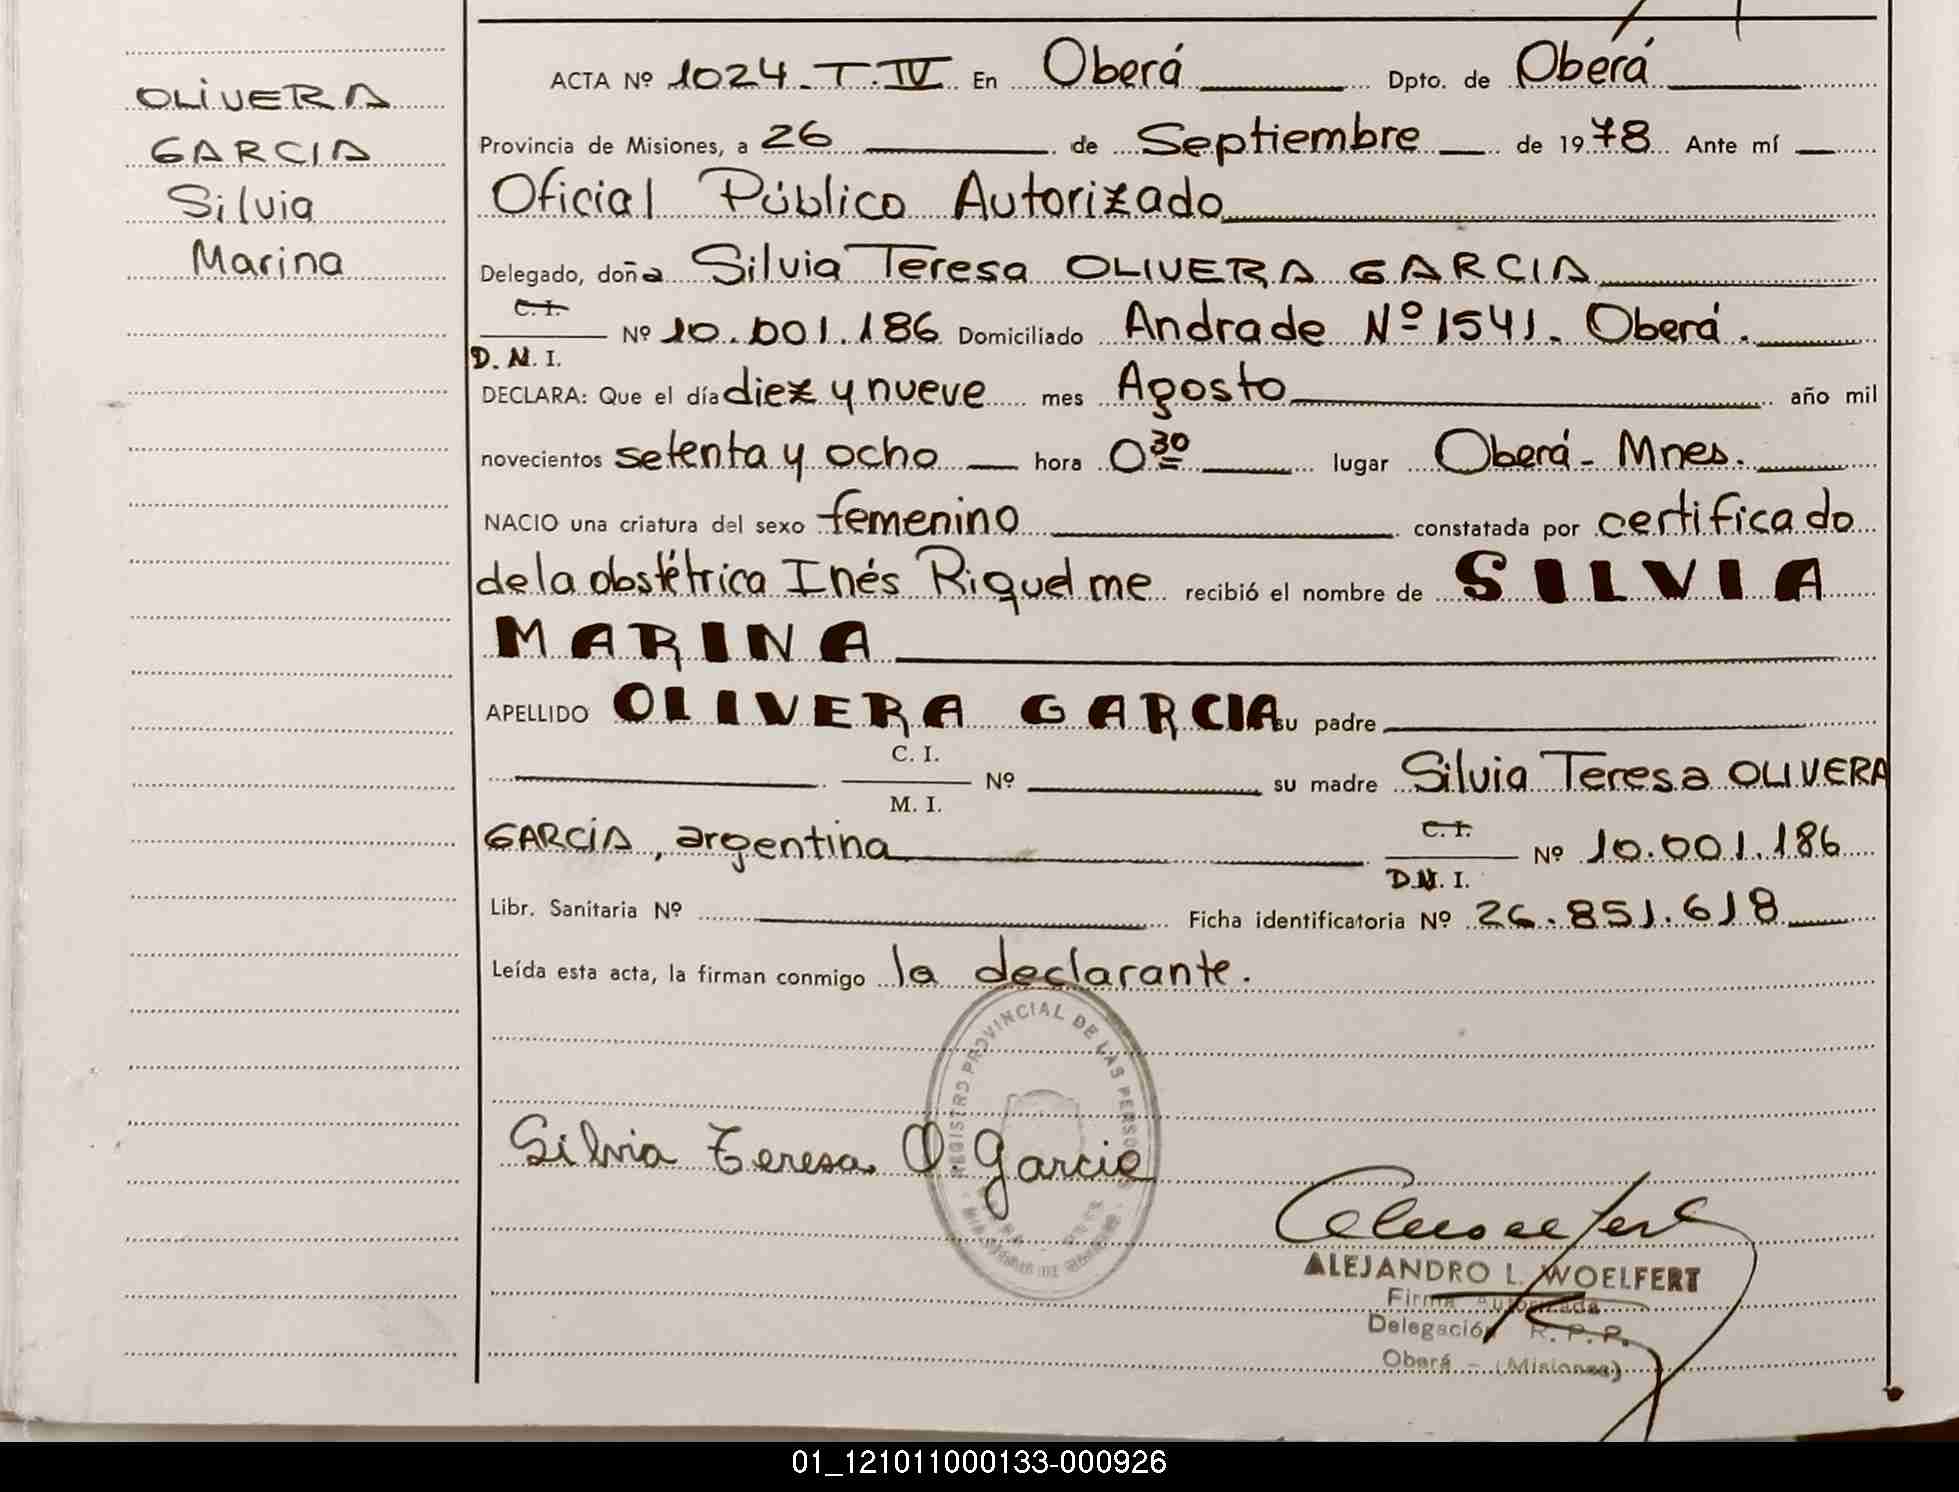 OLIVERA
GARCIA
Silvia
Marina
ACTA Nº 1024. T. IV En Oberá Dpto. de Oberá
Provincia de Misiones, a 26 de Septiembre de 1978 Ante mí
Oficial Público Autorizado
Delegado, doña Silvia Teresa OLIVERA GARCIA
C. I.
Nº 10.001.186 Domiciliado Andrade Nº 1541. Oberá.
D. N. I.
DECLARA: Que el día diez y nueve mes Agosto año mil
novecientos setenta y ocho hora 0 30 lugar Oberá - Mnes.
NACIO una criatura del sexo femenino constatada por certificado
de la obstétrica Inés Riquelme recibió el nombre de SILVIA
MARINA
APELLIDO OLIVERA GARCIA su padre
C. I.
Nº su madre Silvia Teresa OLIVERA
M. I.
GARCÍA, argentina C. I. Nº 10.001.186
D.N. I.
Libr. Sanitaria Nº Ficha identificatoria Nº 26.851.618
Leída esta acta, la firman conmigo la declarante.
REGISTRO PROVINCIAL DE LAS PERSONAS
MINISTERIO DE GOBIERNO
Silvia Teresa O Garcia
ALEJANDRO L. WOELFERT
Firma Autorizada
Delegación R. P. P.
Oberá - (Misiones)
01_121011000133-000926